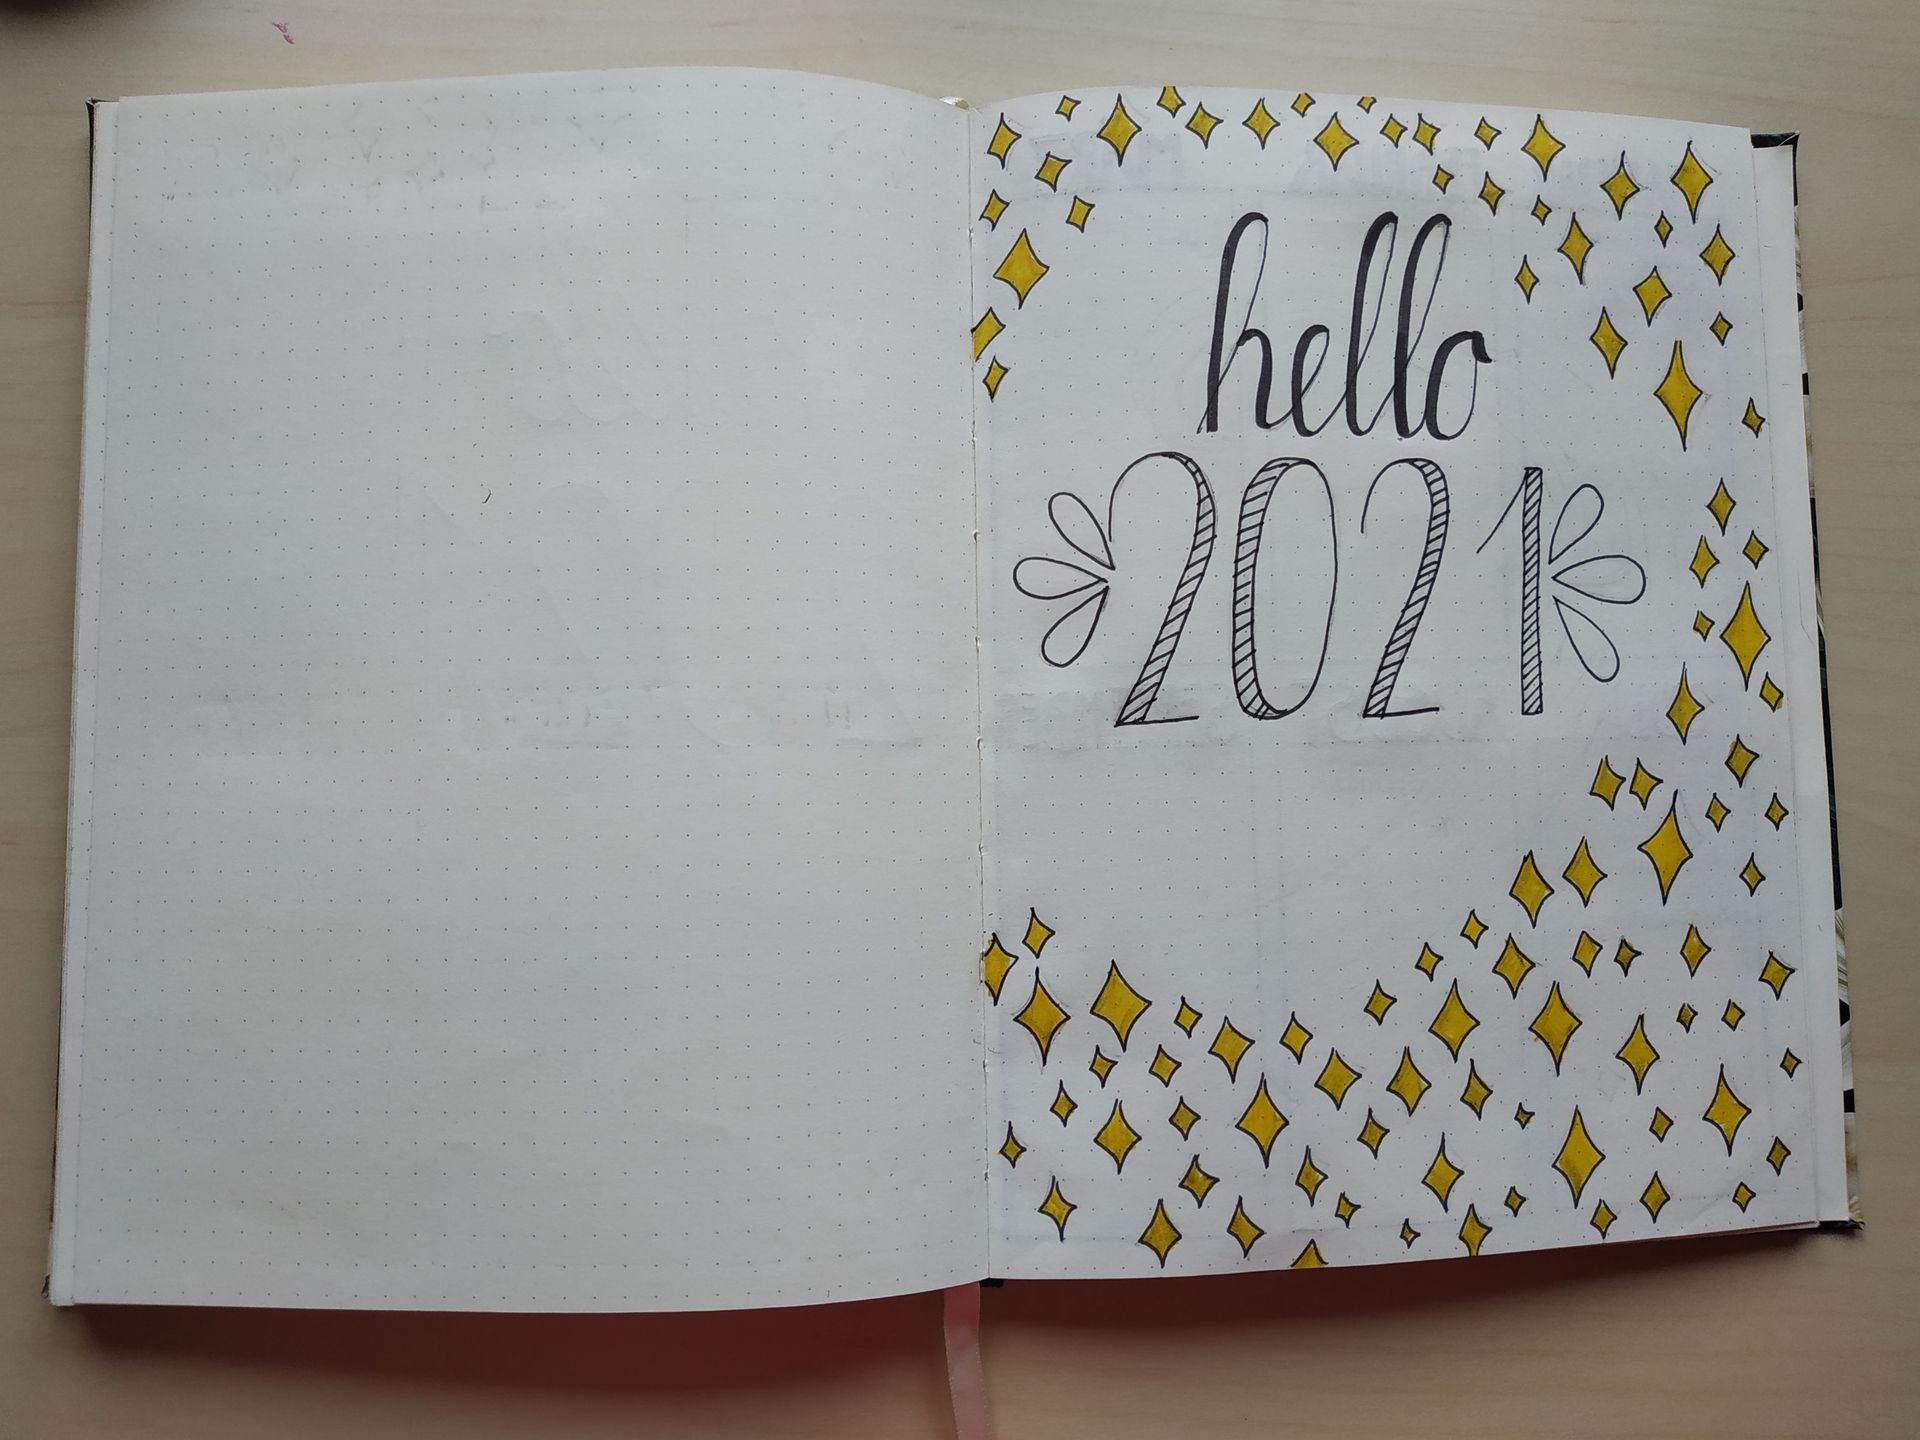 hello
2021